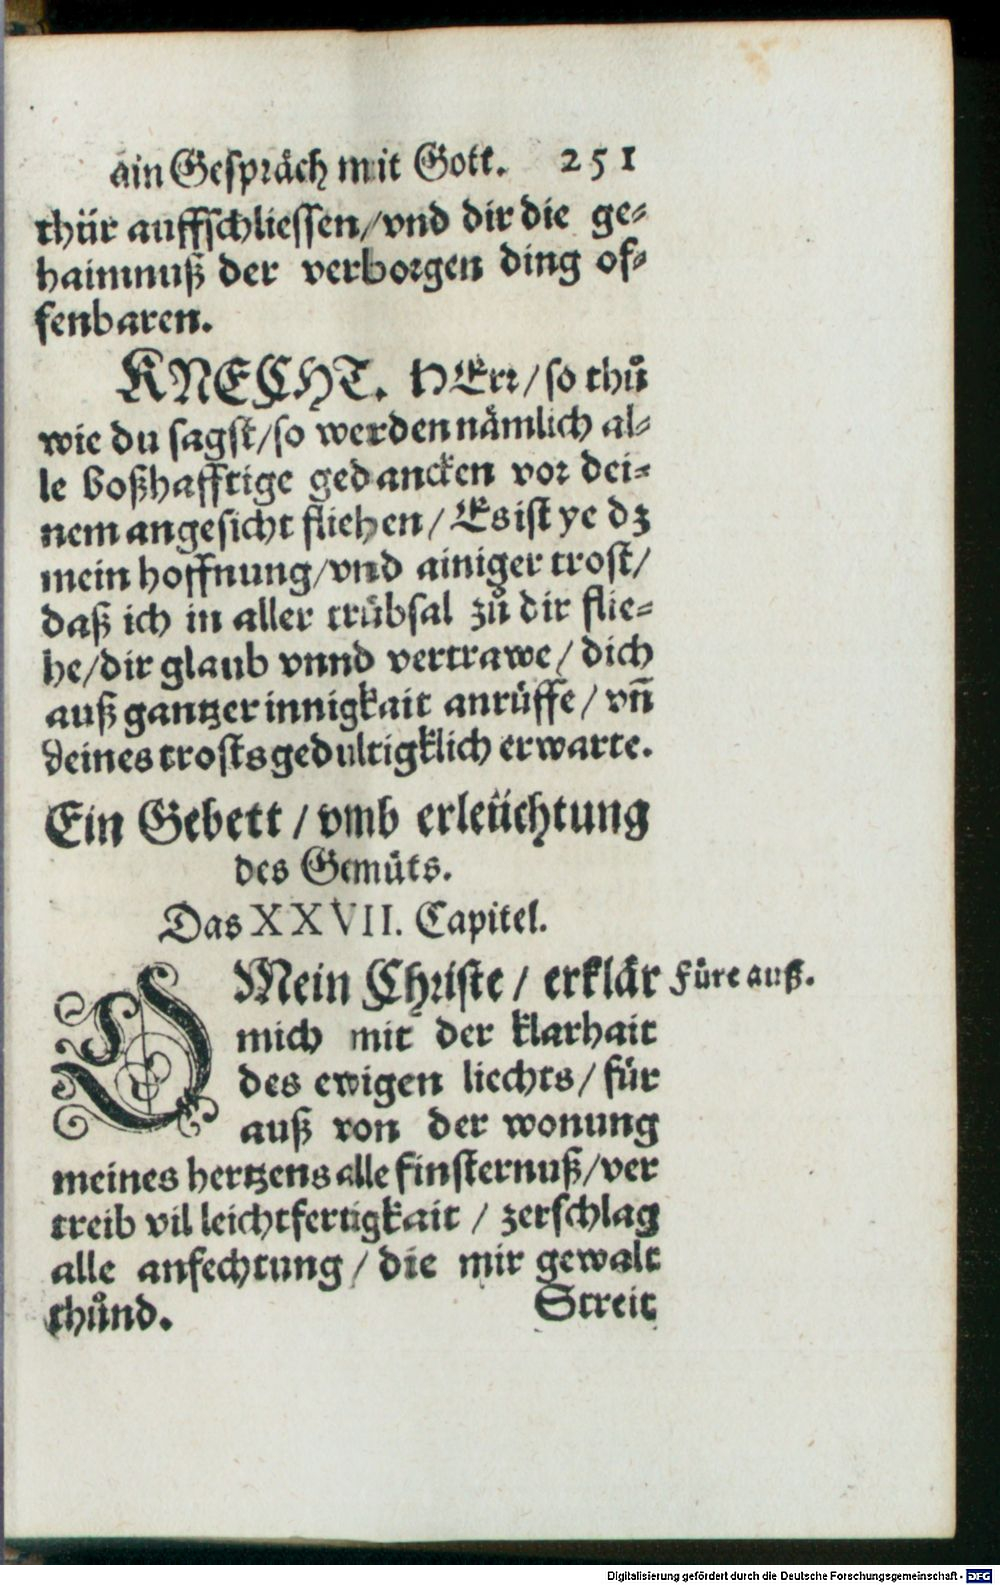 ain Gespräch mit Gott. 251
thür auffschliessen/vnd dir die ge⸗
haimnuß der verborgen ding of⸗
fenbaren.
KNECHT. HErr/so thuͦ
wie du sagst/so werden nämlich al⸗
le boßhafftige gedancken vor dei⸗
nem angesicht fliehen/Es ist ye dz
mein hoffnung/vnd ainiger trost/
daß ich in aller truͤbsal zuͦ dir flie⸗
he/dir glaub vnnd vertrawe/dich
auß gantzer innigkait anruͤffe/vn̄
deines trosts gedultigklich erwarte.
Ein Gebett/vmb erleüchtung
des Gemuͤts.
Das XXVII. Capitel.
O Mein Christe/erklär
Füre auß.
mich mit der klarhait
des ewigen liechts/für
auß von der wonung
meines hertzens alle finsternuß/ver
treib vil leichtfertigkait/zerschlag
alle anfechtung/die mir gewalt
thuͦnd.
Streit
Digitalisierung gefördert durch die Deutsche Forschungsgemeinschaft - DFG